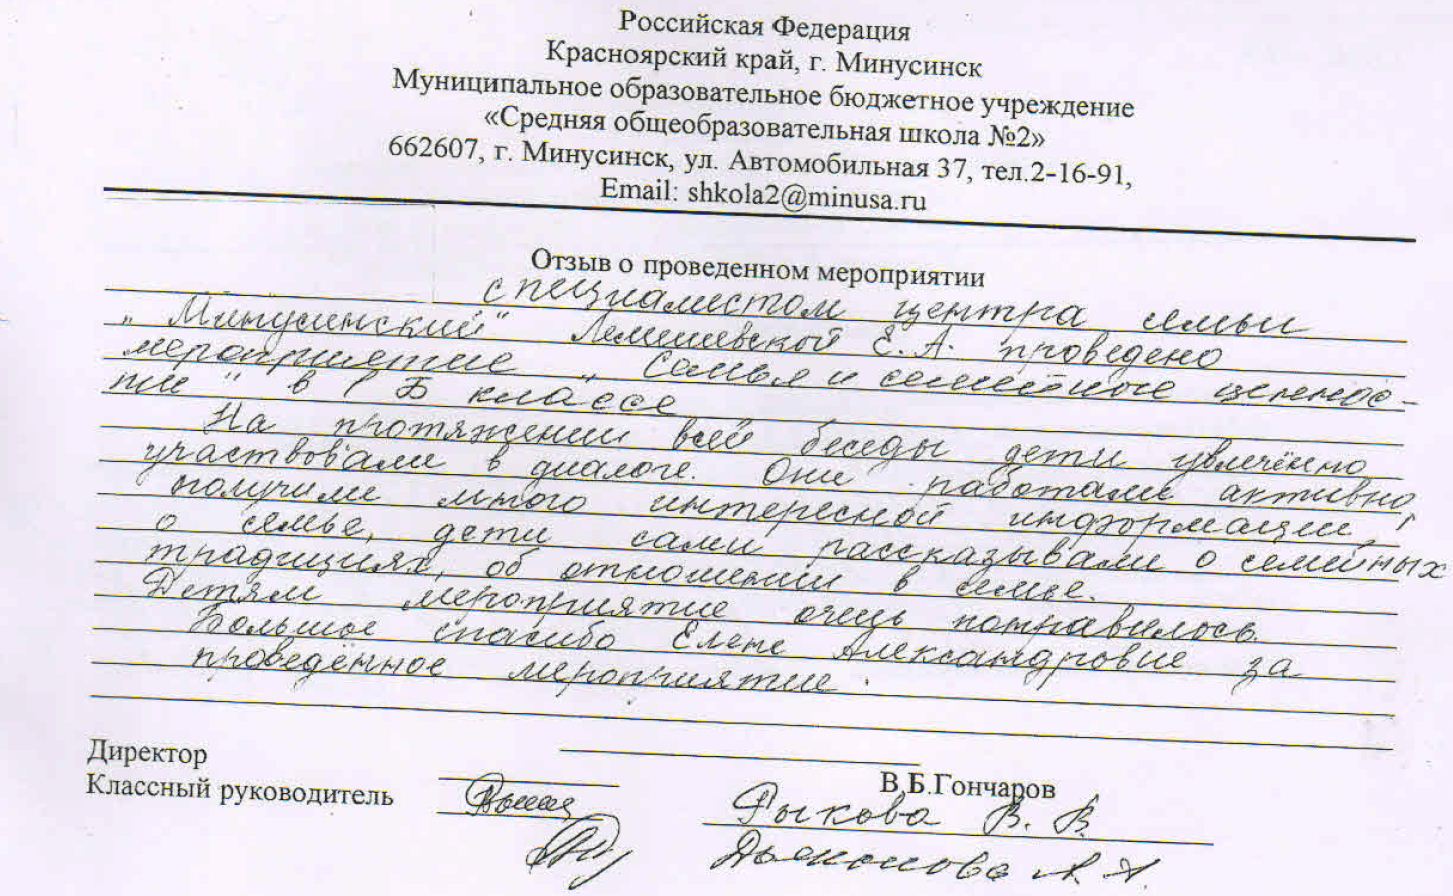 Российская Федерация
Красноярский край, г. Минусинск
Муниципальное образовательное бюджетное учреждение
«Средняя общеобразовательная школа №2»
662607, г. Минусинск, ул. Автомобильная 37, тел.2-16-91,
Email: shkola2@minusa.ru
Отзыв о проведенном мероприятии
специалистом центра семьи
„Минусинский" Лемешевской Е.А. проведено
мероприятие „Семья и семейные ценнос-
ти" в 1 Б классе
На протяжении всей беседы дети увлечённо
участвовали в диалоге. Они работали активно,
получили много интересной информации
о семье, дети сами рассказывали о семейных
традициях, об отношении в семье.
Детям мероприятие очень понравилось.
Большое спасибо Елене Александровне за
проведённое мероприятие.
Директор
В.Б.Гончаров
Классный руководитель
Рыкова В. В.
Дьяконова А. А.